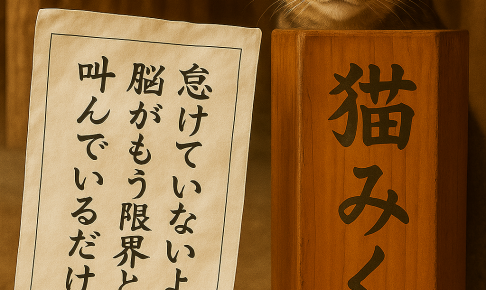 猫みく
怠けていないよ
脳がもう限界と
叫んでいるだけ